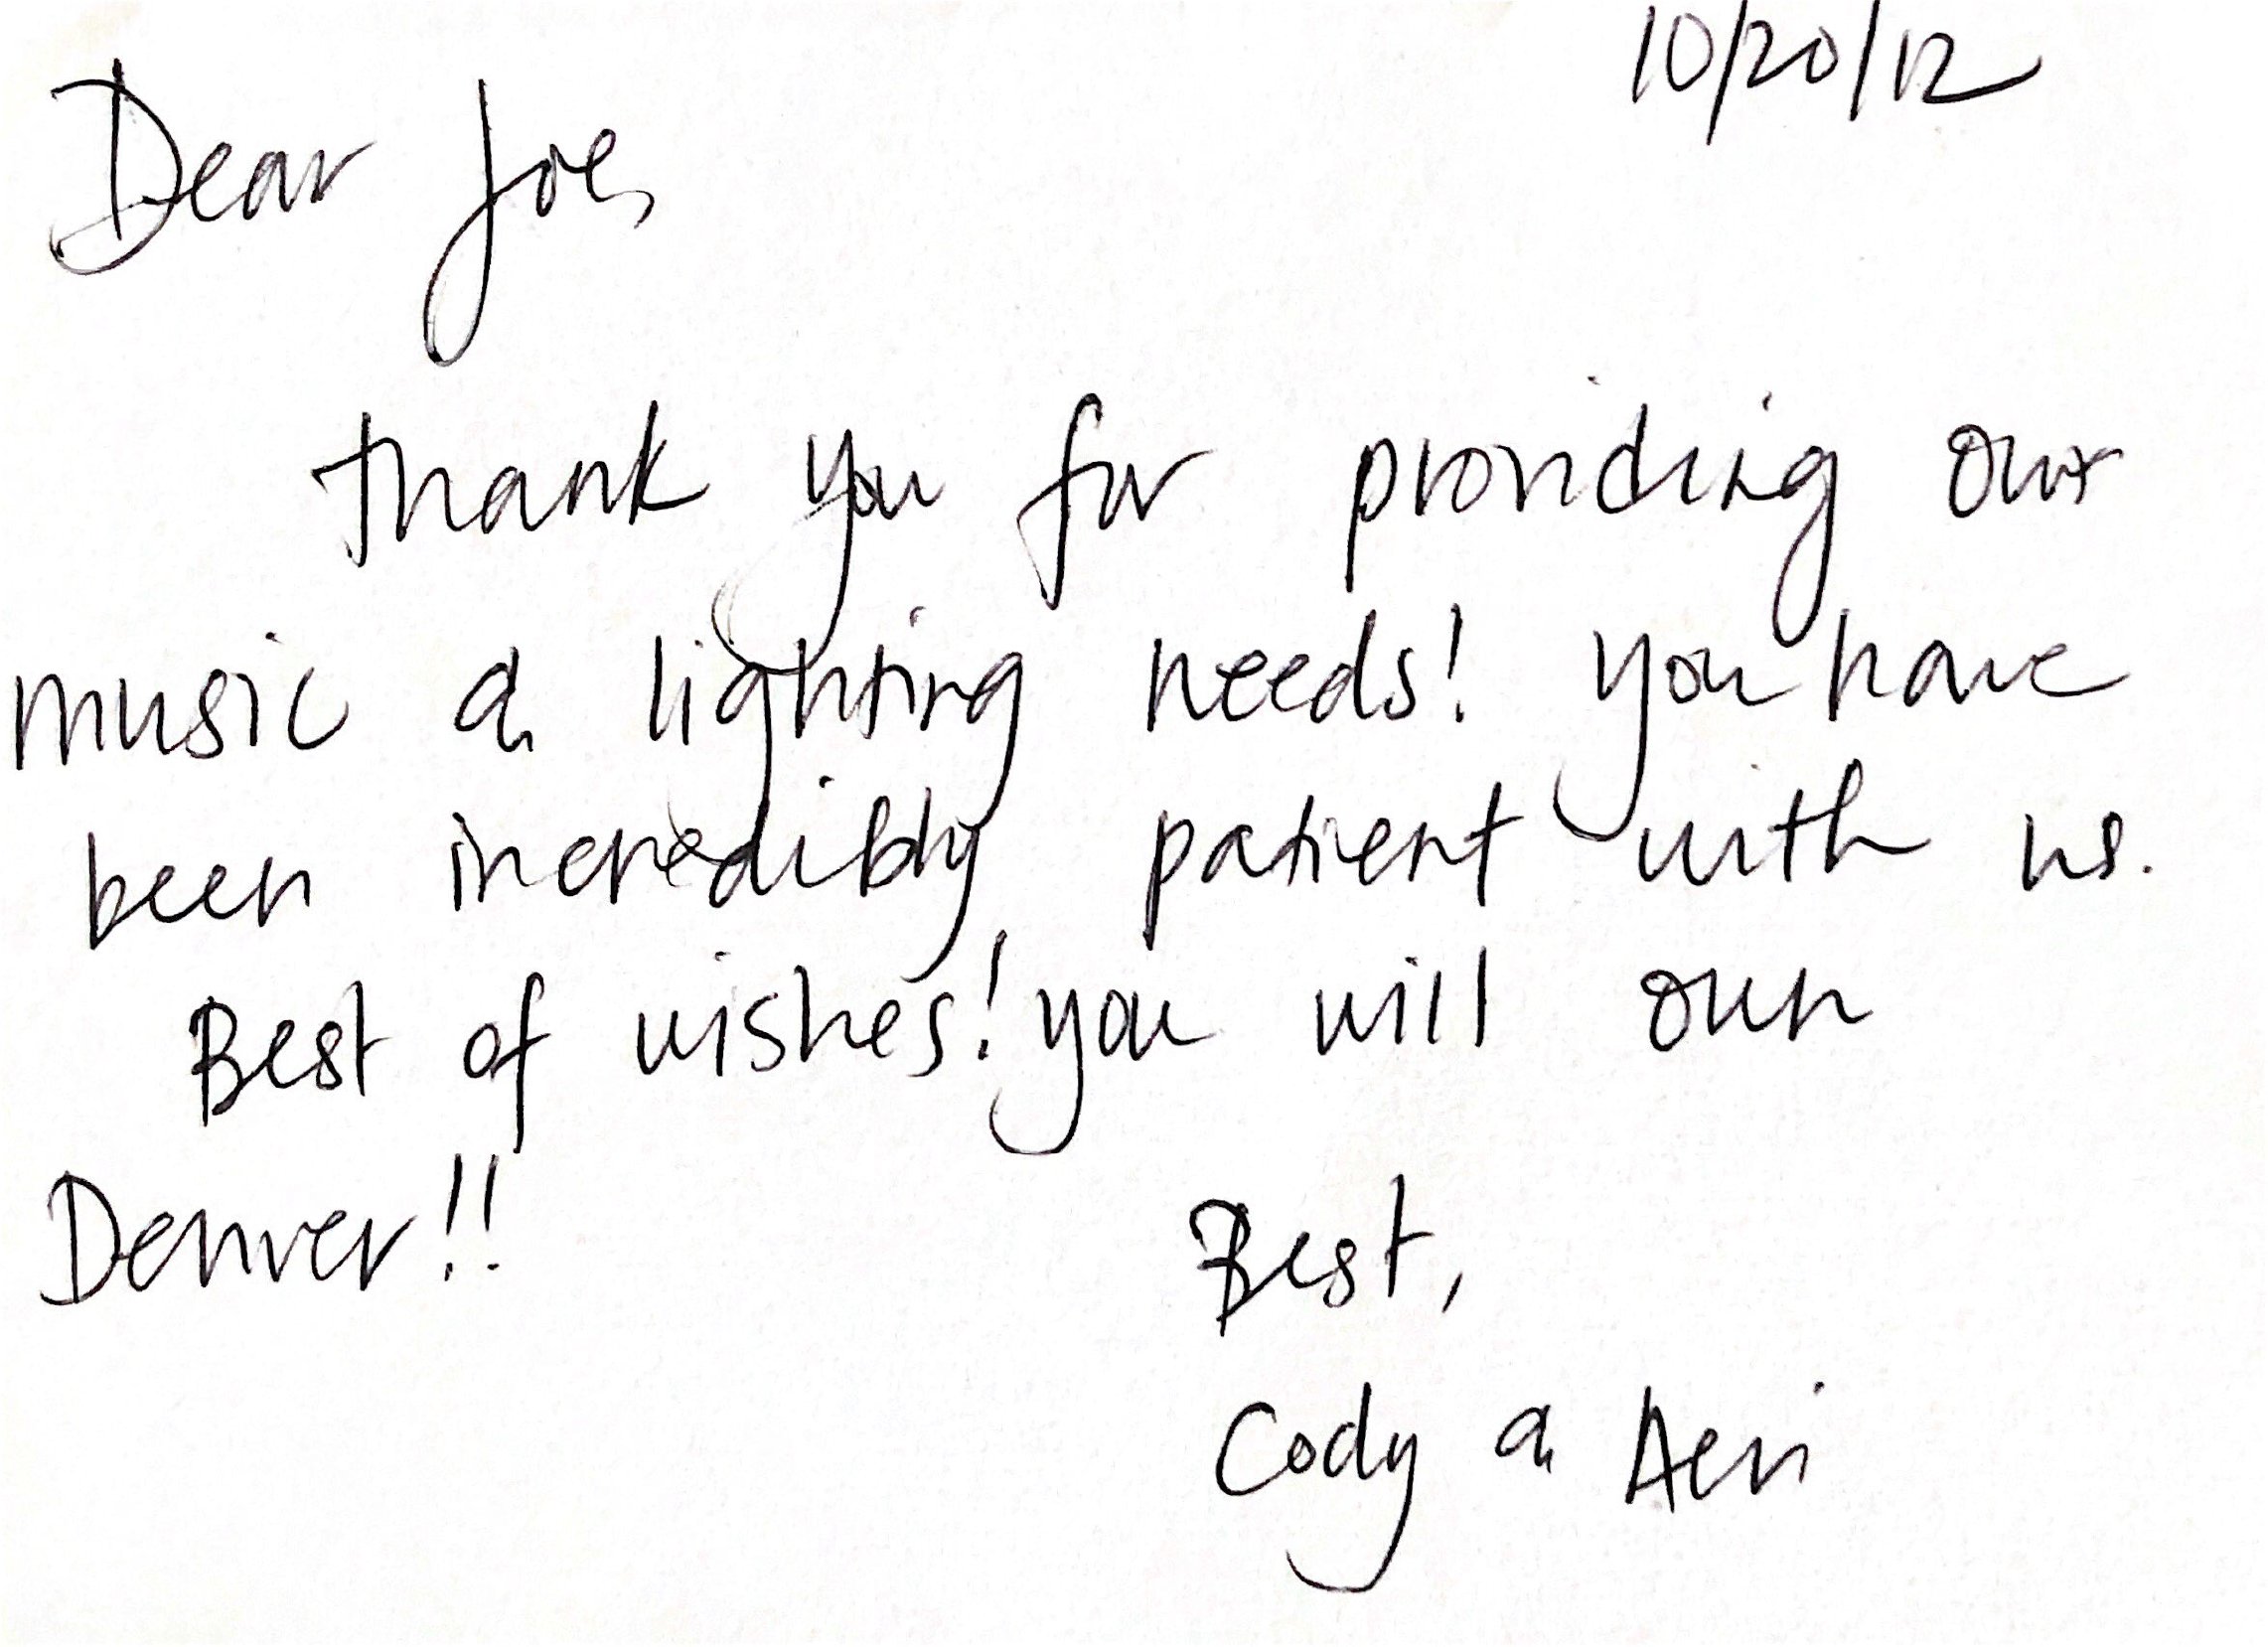 10/20/12
Dear Joe,
Thank you for providing our
music & lighting needs! You have
been incredibly patient with us.
Best of wishes! You will own
Denver!!
Best,
Cody & Aeri